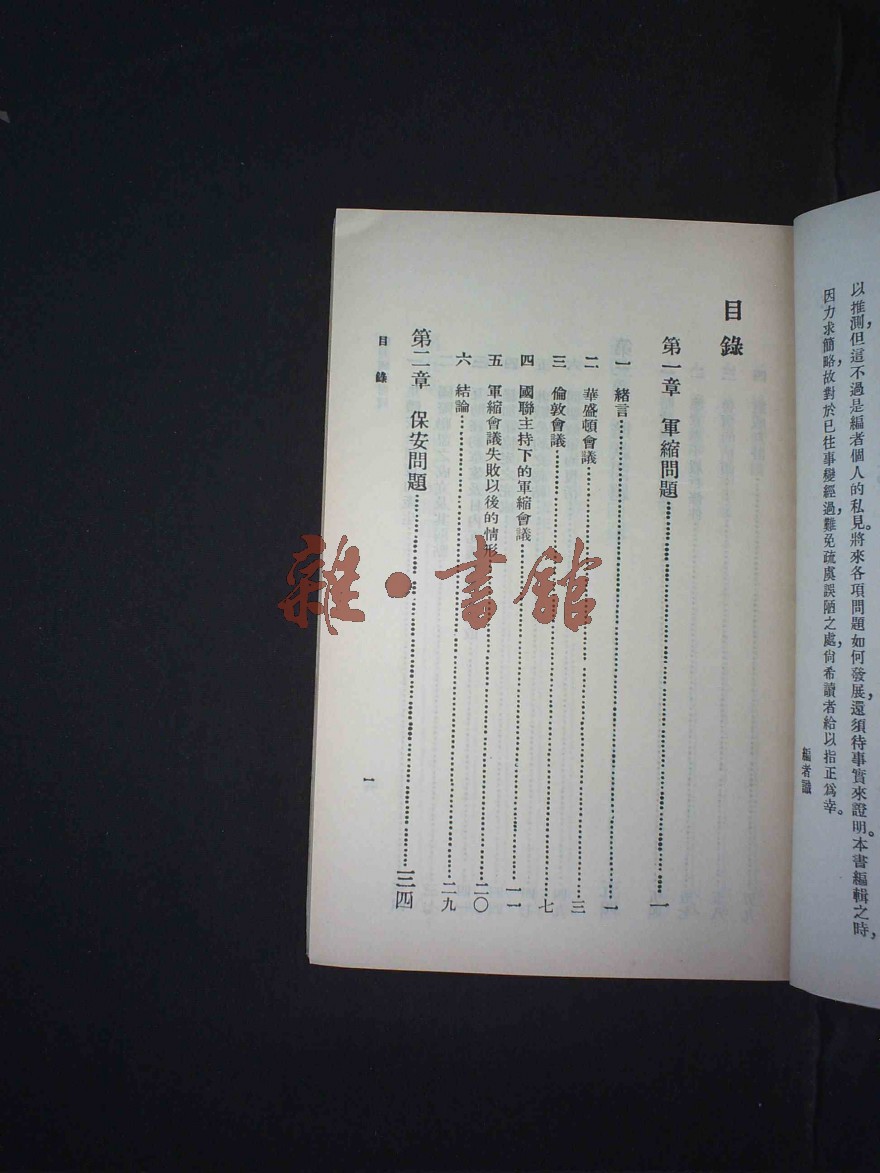 以推測，但這不過是編者個人的私見。將來各項問題如何發展，還須待事實來證明。本書編輯之時，
因力求簡略，故對於已往事變經過，難免疏虞誤陋之處，尙希讀者給以指正爲幸。
編者識
目錄
第一章 軍縮問題……一
一 緒言……一
二 華盛頓會議……三
三 倫敦會議……七
四 國聯主持下的軍縮會議……一一
五 軍縮會議失敗以後的情形……二〇
六 結論……二九
第二章 保安問題……三四
目錄
一
雜·書館